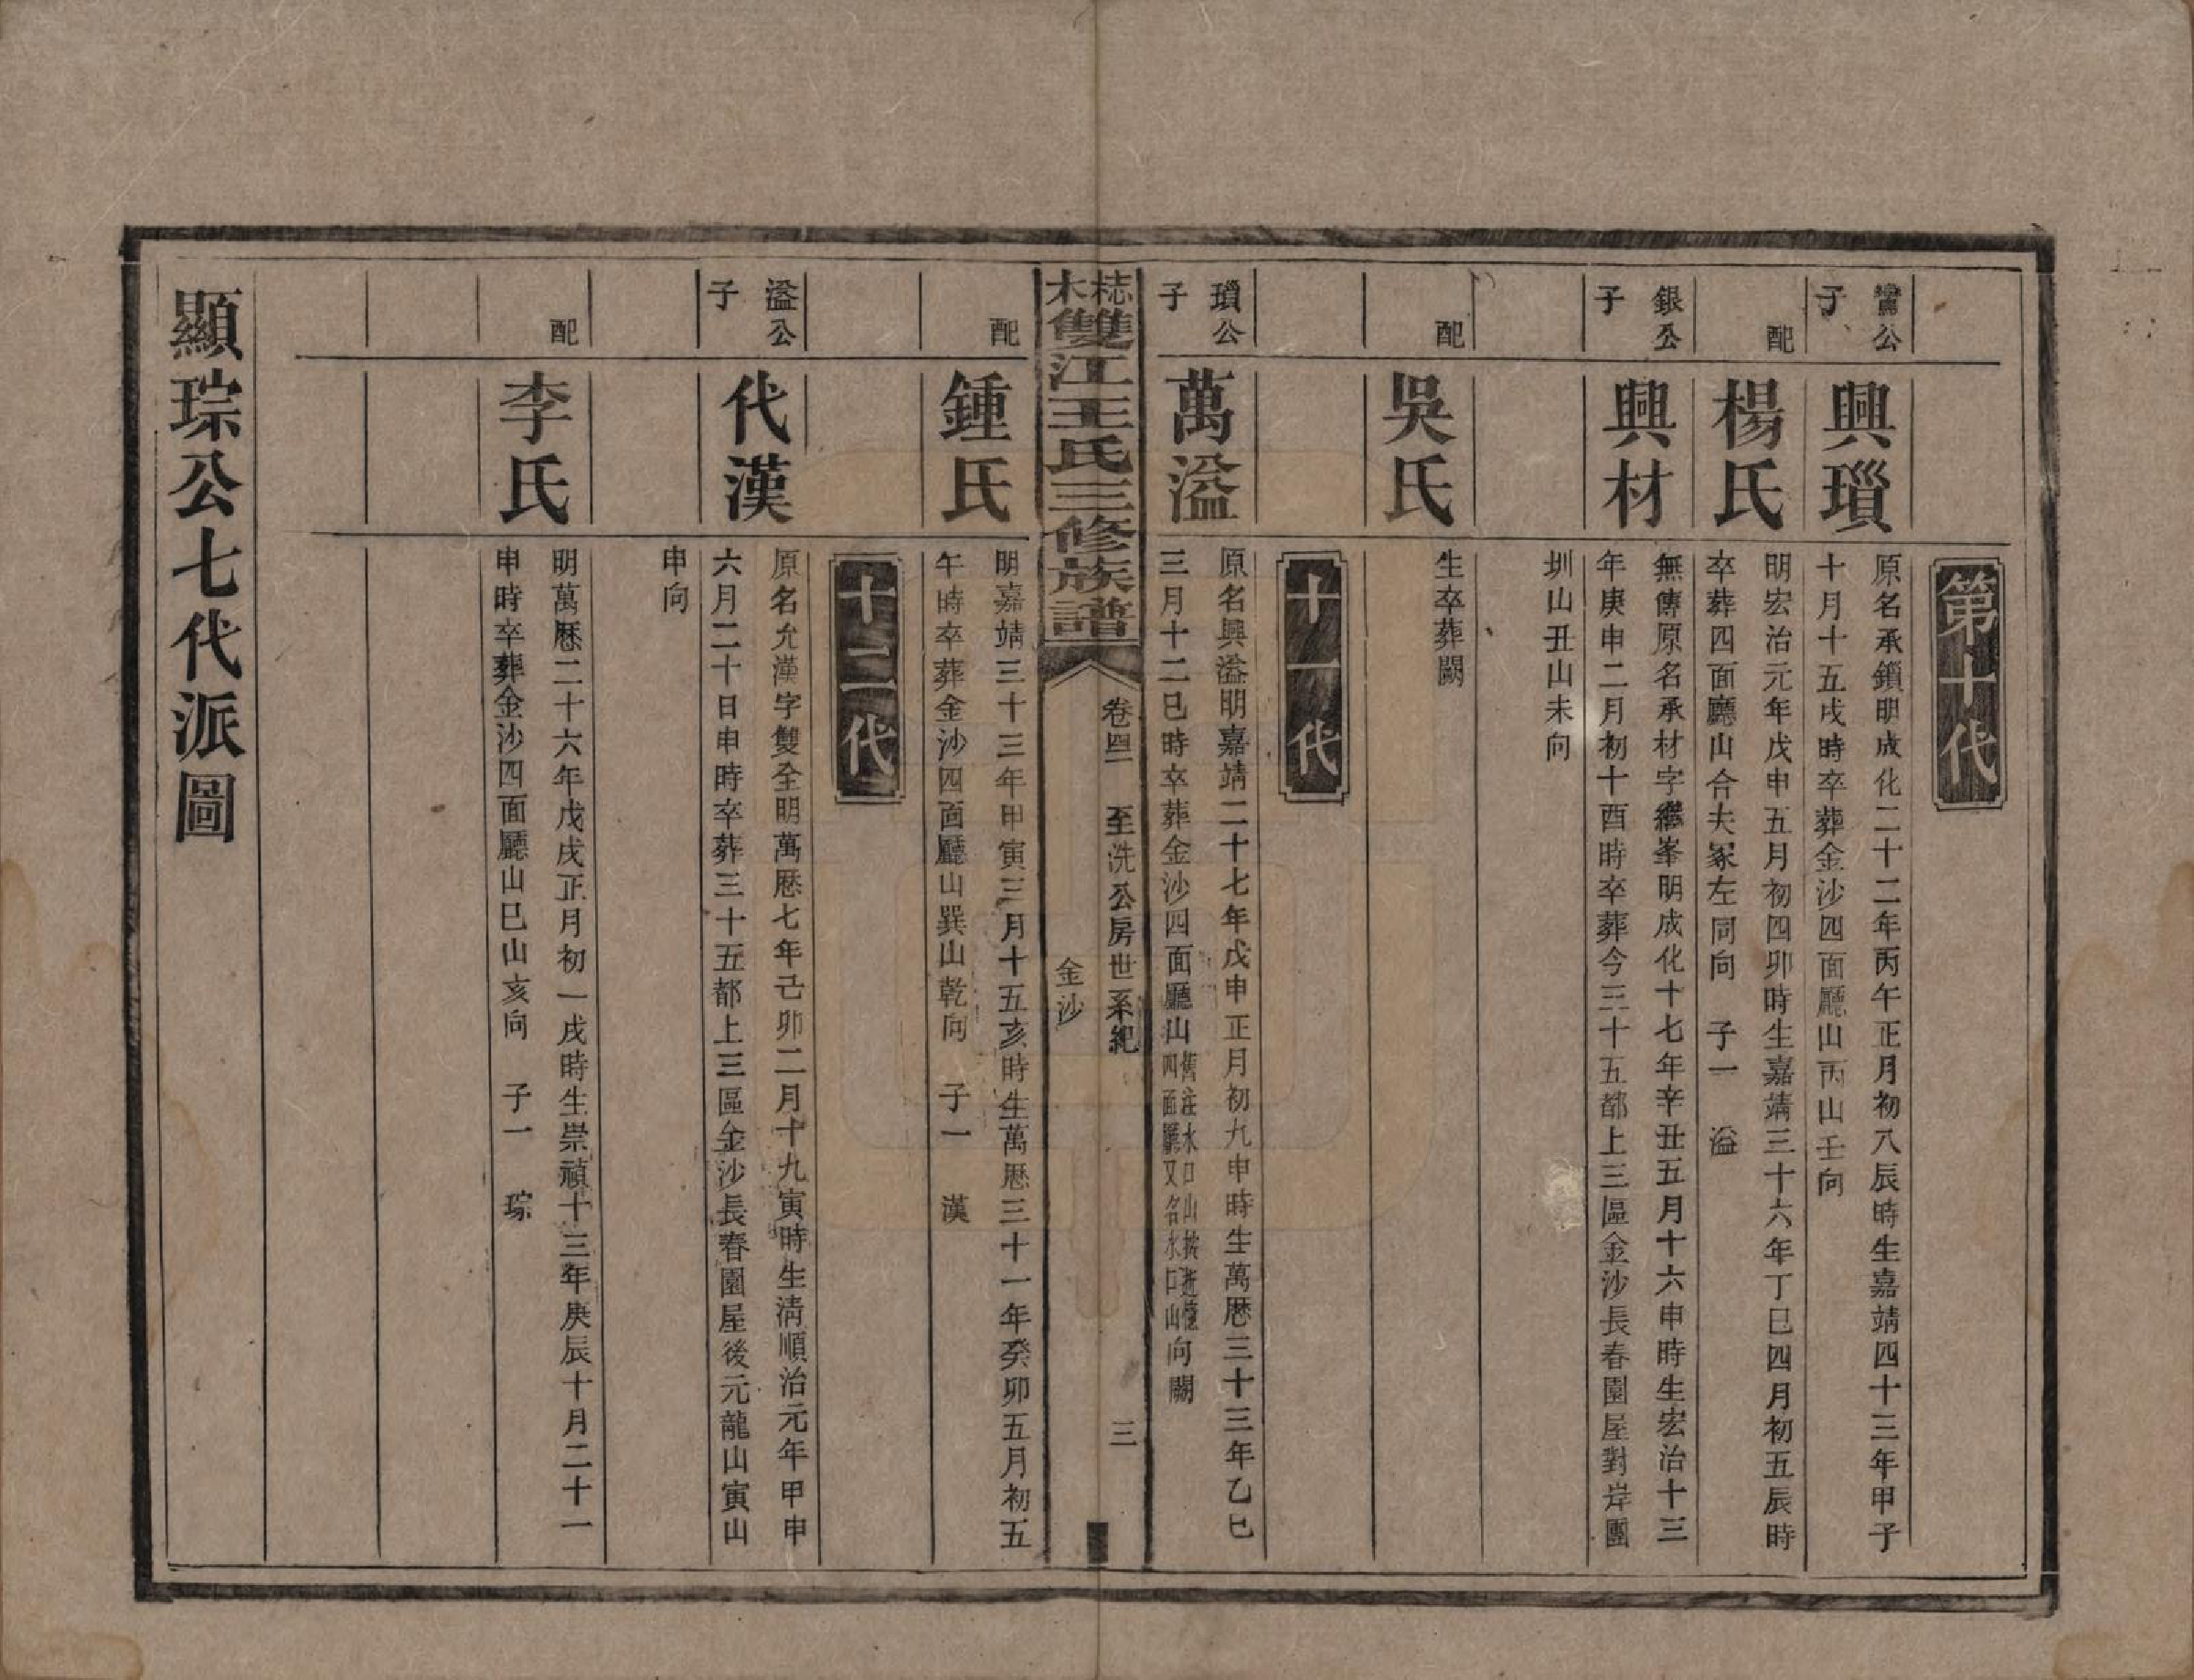 第十代
公
子
興瑣
原名承鎖明成化二十二年丙午正月初八辰時生嘉靖四十三年甲子
十月十五戌時卒葬金沙四面廳山丙山壬向
配
楊氏
明宏治元年戊申五月初四卯時生嘉靖三十六年丁巳四月初五辰時
卒葬四面廳山合夫冢左同向 子一 溢
銀公
子
興材
無傳原名承材字繼峯明成化十七年辛丑五月十六申時生宏治十三
年庚申二月初十酉時卒葬今三十五都上三區金沙長春園屋對岸團
圳山丑山未向
配
吳氏
生卒葬闕
十一代
瑣公
子
萬溢
原名興溢明嘉靖二十七年戊申正月初九申時生萬歷三十三年乙巳
三月十二巳時卒葬金沙四面廳山
舊注水口山
四面廳又名水口山
向闕
桂木雙江王氏三修族譜
卷四 至洗公房世系紀
金沙
三
配
鍾氏
明嘉靖三十三年甲寅三月十五亥時生萬歷三十一年癸卯五月初五
午時卒葬金沙四面廳山巽山乾向 子一 漢
十二代
溢公
子
代漢
原名允漢字雙全明萬歷七年己卯二月十九寅時生清順治元年甲申
六月二十日申時卒葬三十五都上三區金沙長春園屋後元龍山寅山
申向
配
李氏
明萬歷二十六年戊戌正月初一戌時生崇禎十三年庚辰十月二十一
申時卒葬金沙四面廳山巳山亥向 子一 琮
顯琮公七代派圖